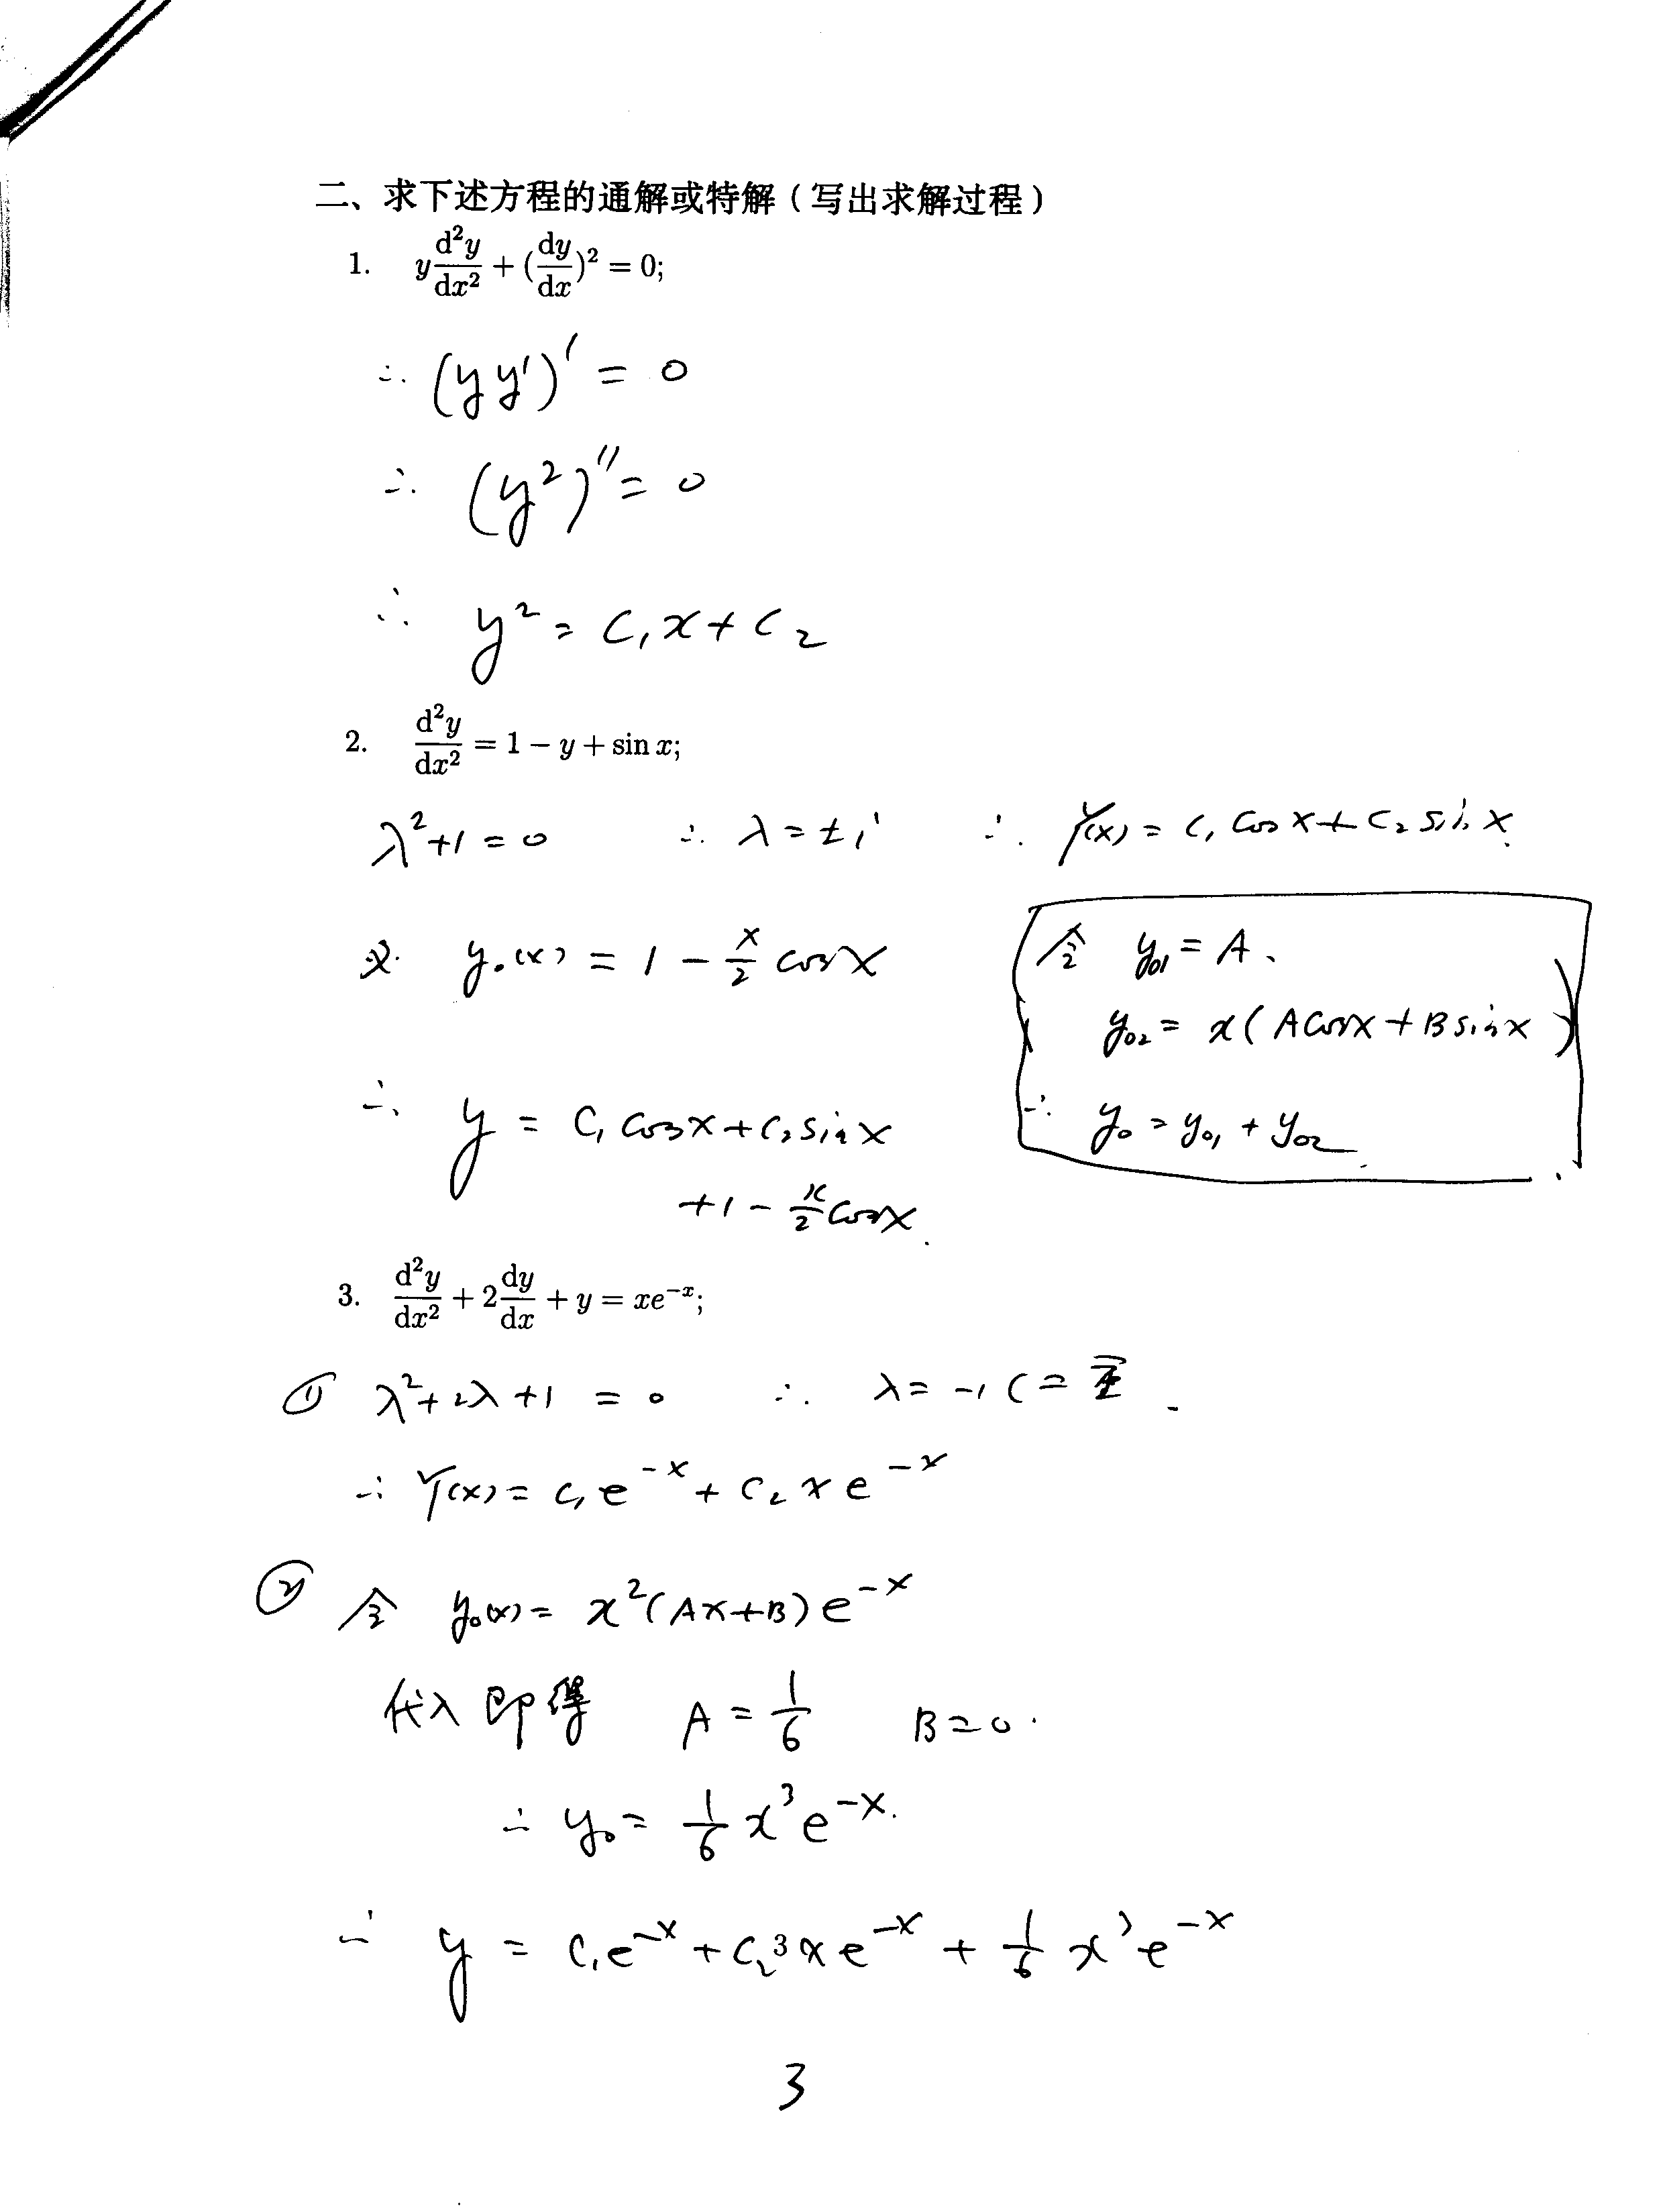 二、求下述方程的通解或特解（写出求解过程）
1. y d²y/dx² + (dy/dx)² = 0;
∴ (yy′)′ = 0
∴ (y²)″ = 0
∴ y² = C₁x + C₂
2. d²y/dx² = 1 − y + sin x;
λ² + 1 = 0 ∴ λ = ±i ∴ Y(x) = C₁ cos x + C₂ sin x.
又 y₀(x) = 1 − x/2 cos x
令 y₀₁ = A、
y₀₂ = x(A cos x + B sin x)
∴ y₀ = y₀₁ + y₀₂.
∴ y = C₁ cos x + C₂ sin x
+1 − x/2 cos x.
3. d²y/dx² + 2 dy/dx + y = xe⁻ˣ;
① λ² + 2λ + 1 = 0 ∴ λ = −1 (二重.
∴ Y(x) = C₁e⁻ˣ + C₂xe⁻ˣ
② 令 y₀(x) = x²(Ax+B)e⁻ˣ
代入即得 A = 1/6 B = 0.
∴ y₀ = 1/6 x³e⁻ˣ.
∴ y = C₁e⁻ˣ + C₂xe⁻ˣ + 1/6 x³e⁻ˣ
3
3